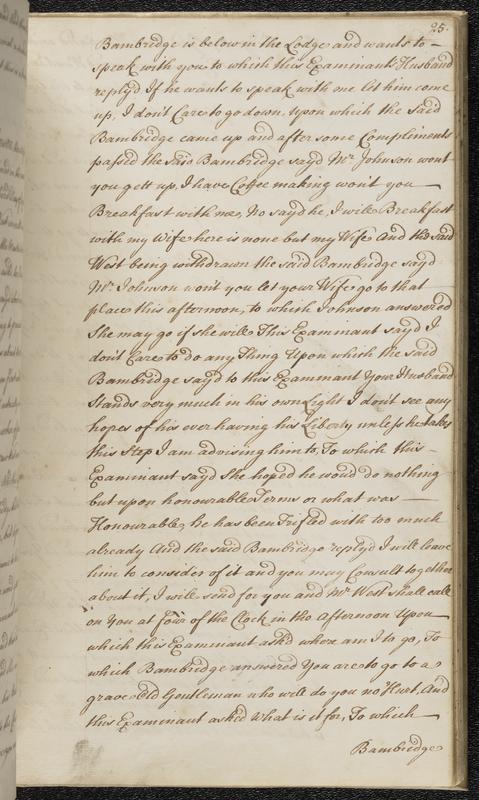 25.
Bambridge is below in the Lodge and wants to
speak with you to which this Examinants Husband
reply'd If he wants to speak with me let him come
up, I don't Care to go down, upon which the said
Bambridge came up and after some Compliments
passed the said Bambridge sayd Mr. Johnson wont
you gett up, I have Coffee making won't you
Breakfast with me, No sayd he, I will Breakfast
with my Wife here is none but my Wife And the said
West being withdrawn the said Bambridge sayd
Mr. Johnson won't you let your Wife go to that
place this afternoon, to which Johnson answered
She may go if she will This Examinant sayd I
don't Care to do any Thing Upon which the said
Bambridge sayd to this Examinant Your Husband
Stands very much in his own Light I don't see any
hopes of his ever having his Liberty unless he takes
this Step I am advising him to, To which this
Examinant sayd She hoped he woud do nothing
but upon honourable Terms or what was
Honourable, he has been Trifled with too much
already And the said Bambridge reply'd I will leave
him to consider of it and you may Consult together
about it, I will send for you and Mr. West shall call
on You at four of the Clock in the Afternoon Upon
which this Examinant askd where am I to go, To
which Bambridge answered You are to go to a
grave Old Gentleman who will do you no Hurt, And
this Examinant asked What is it for, To which
Bambridge